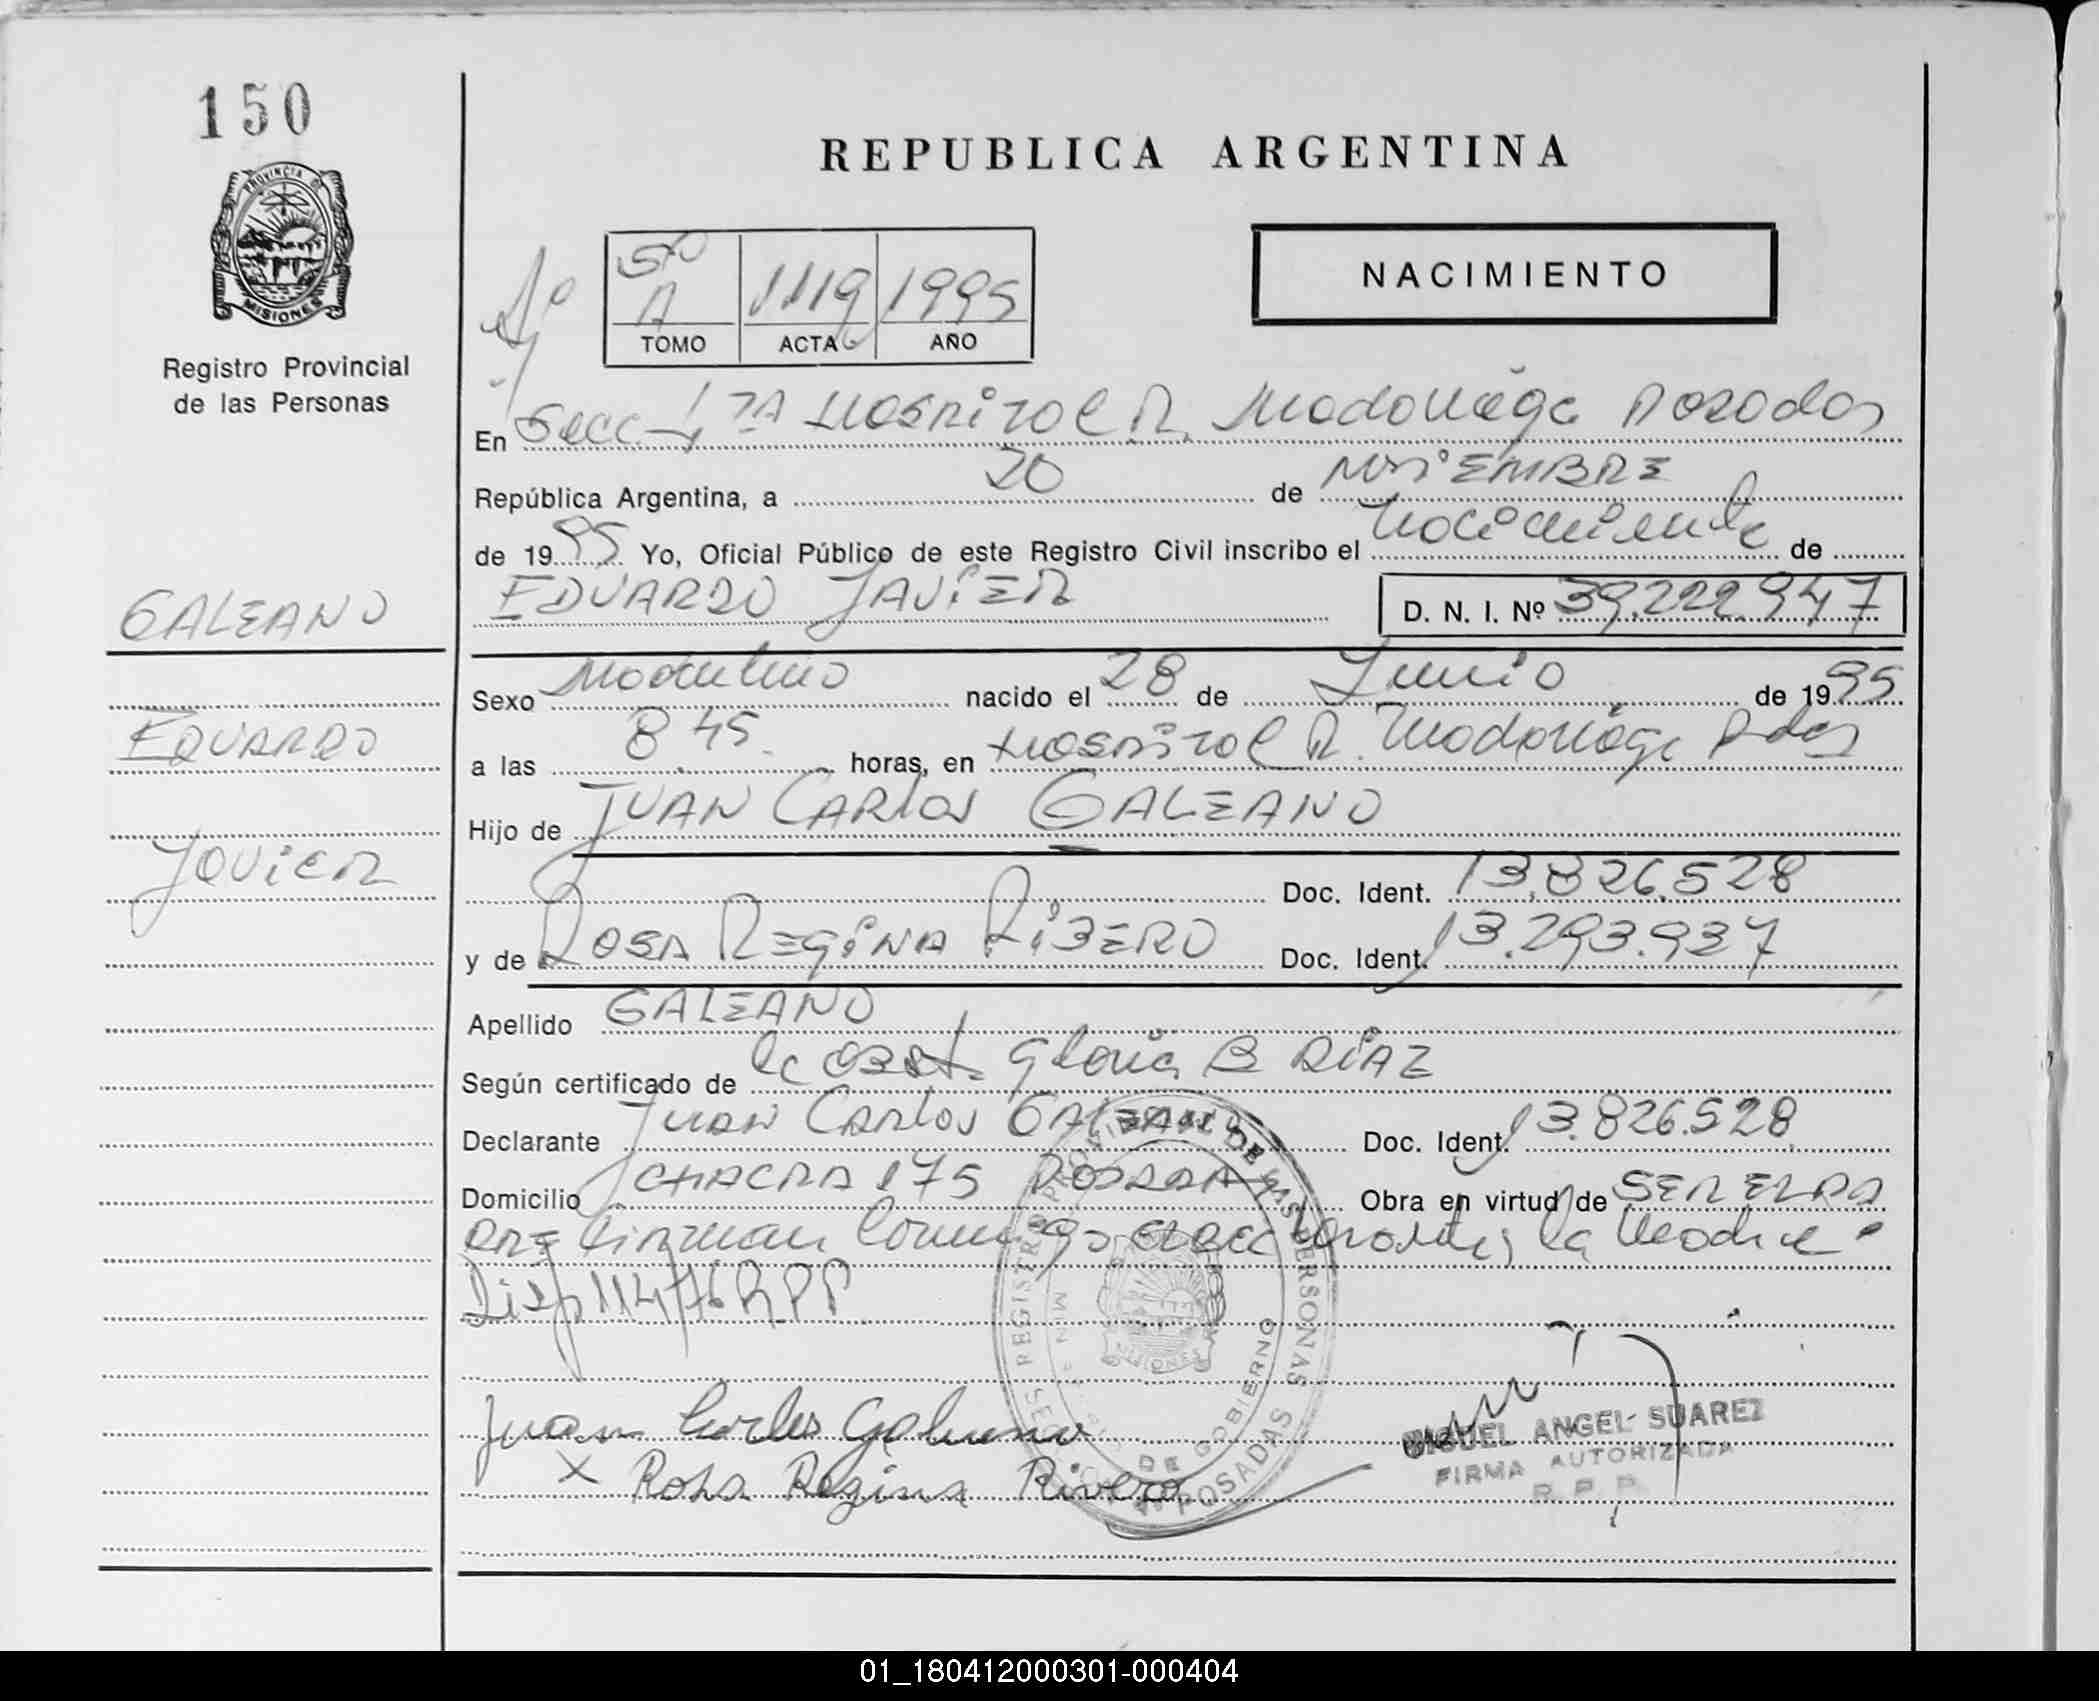 150
PROVINCIA DE
MISIONES
Registro Provincial
de las Personas
REPUBLICA ARGENTINA
NACIMIENTO
5to
A 1119 1995
TOMO ACTA AÑO
En Secc 1ra Hospital R. Madariaga Posadas
República Argentina, a 20 de NOVIEMBRE
de 1995 Yo, Oficial Público de este Registro Civil inscribo el nacimiento de
EDUARDO JAVIER D. N. I. Nº 39.222.947
GALEANO
EDUARDO
JAVIER
Sexo Masculino nacido el 28 de Junio de 1995
a las 8 45 horas, en Hospital R. Madariaga Pdas
Hijo de JUAN CARLOS GALEANO
Doc. Ident. 13.826.528
y de ROSA REGINA RIBERO Doc. Ident. 13.293.937
Apellido GALEANO
Según certificado de la obst. Gloria B DIAZ
Declarante JUAN CARLOS GALEANO Doc. Ident. 13.826.528
Domicilio CHACRA 175 POSADAS Obra en virtud de SER EL PA
DRE firman conmigo el declarante y la madre.
Disp 114/76 RPP
Juan Carlos Galeano
x Rosa Regina Rivero
REGISTRO PROVINCIAL DE LAS PERSONAS
DE GOBIERNO
POSADAS
MISIONES
MIGUEL ANGEL SUAREZ
FIRMA AUTORIZADA
R. P. P.
01_180412000301-000404